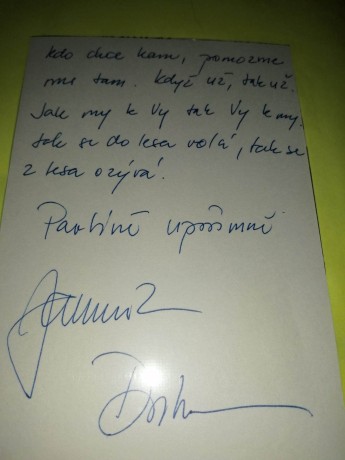 kdo chce kam, pomozme
mu tam. když už, tak už.
Jak my k Vy tak Vy k my.
Jak se do lesa volá, tak se
z lesa ozývá.
Pavlíně upřímně